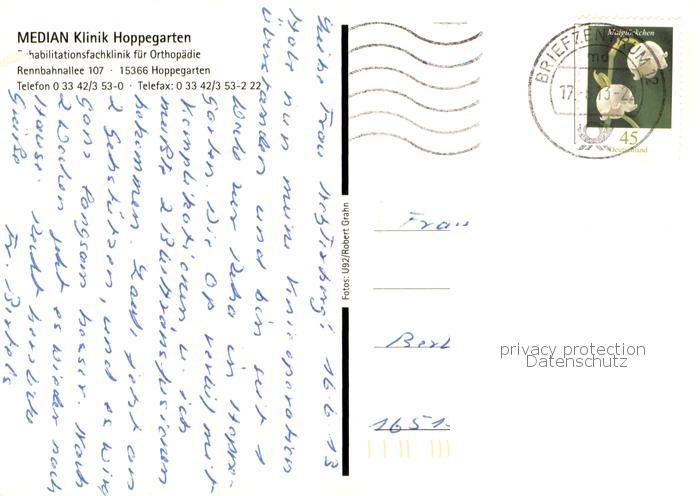 MEDIAN Klinik Hoppegarten
Rehabilitationsfachklinik für Orthopädie
Rennbahnallee 107 · 15366 Hoppegarten
Telefon 0 33 42/3 53-0 · Telefax: 0 33 42/3 53-2 22
Liebe Frau 16.6.13
Habe nun meine Knieoperation
überstanden und bin seit 1
Woche zur Reha in Hoppe-
garten. Die OP verlief mit
Komplikationen u. ich
mußte 2 Bluttransfusionen
bekommen. Laufe jetzt an
2 Gehstützen, und es wird
ganz langsam besser. Noch
2 Wochen, geht es wieder nach
Hause. Recht herzliche
Grüße
Fr.
Fotos: U92/Robert Grahn
BRIEFZENTRUM
17.
Maiglöckchen
45
Deutschland
Frau
Berl
1651
privacy protection
Datenschutz